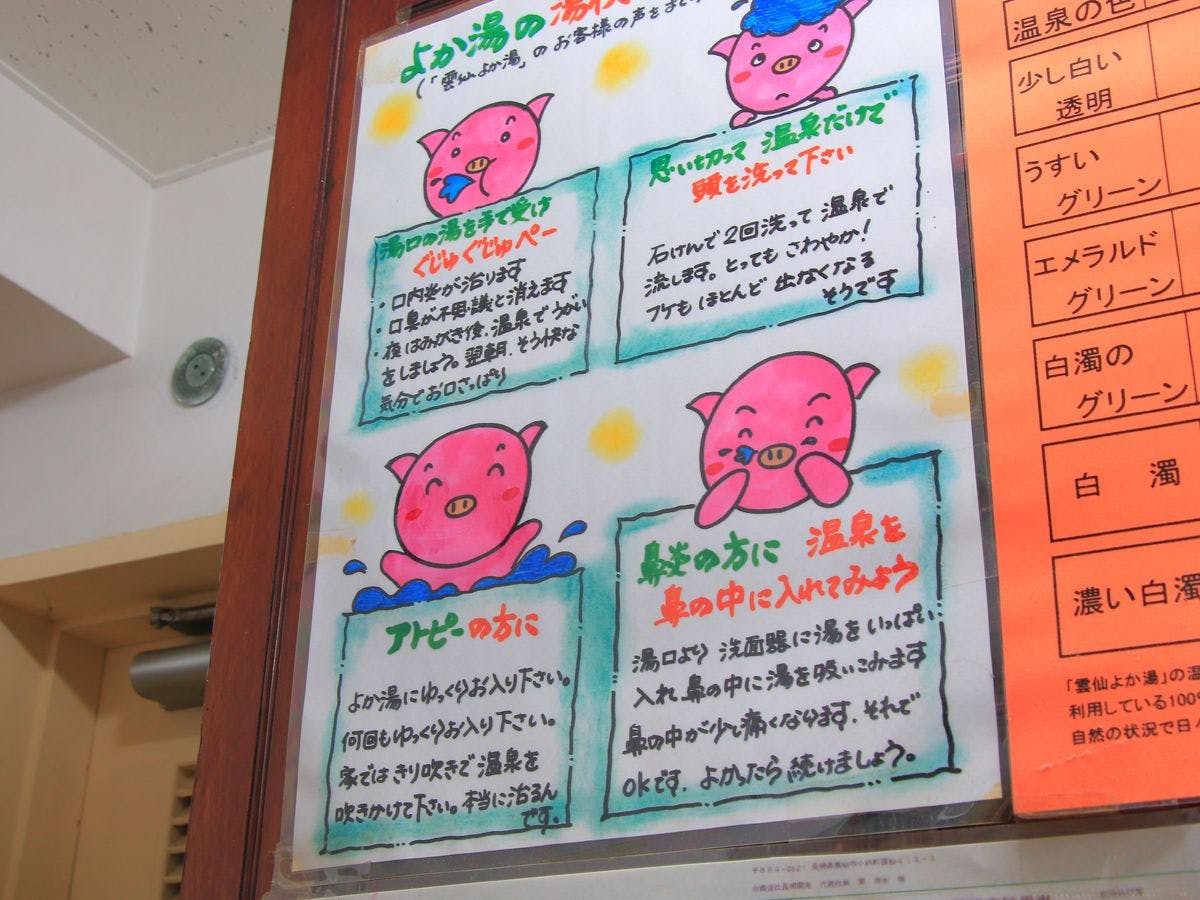 よか湯の湯
(「雲仙よか湯」のお客様の声をまと
湯口の湯を手で受け
ぐじゅぐじゅペー
・口内炎が治ります
・口臭が不思議と消えます
・夜はみがき後、温泉でうがい
をしましょう。翌朝、そう快な
気分でお口さっぱり
思い切って 温泉だけで
頭を洗って下さい
石けんで2回洗って 温泉で
流します。とっても さわやか!
フケも ほとんど 出なくなる
そうです
アトピーの方に
よか湯にゆっくりお入り下さい。
何回もゆっくりお入り下さい。
家では きり吹きで 温泉を
吹きかけて下さい。本当に治るん
です。
鼻炎の方に 温泉を
鼻の中に入れてみよう
湯口より 洗面器に湯をいっぱい
入れ 鼻の中に湯を吸いこみます
鼻の中が少し痛くなります。それで
OKです。よかったら 続けましょう。
温泉の色
少し白い
透明
うすい
グリーン
エメラルド
グリーン
白濁の
グリーン
白 濁
濃い白濁
「雲仙よか湯」の温
利用している100
自然の状況で日